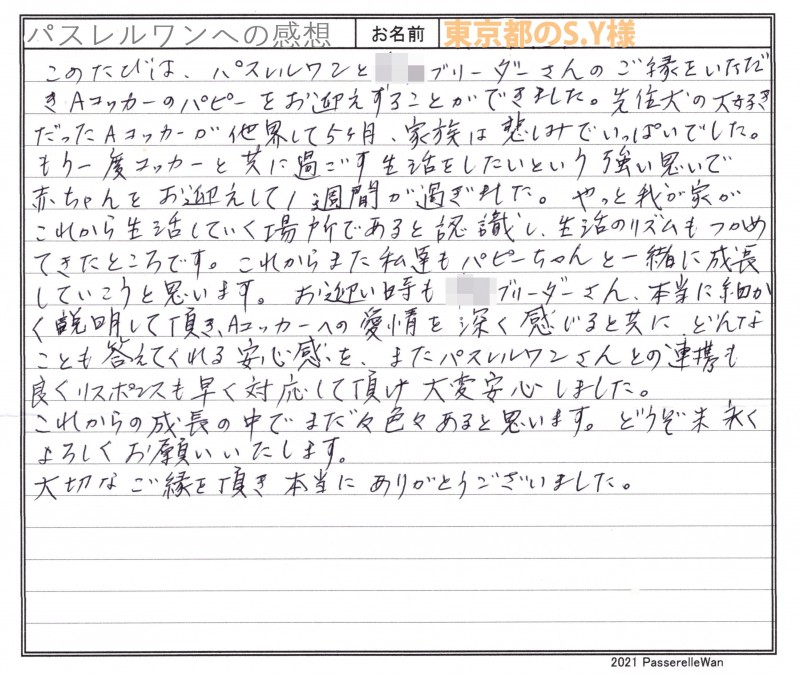 パスレルワンへの感想 お名前 東京都のS.Y様
このたびは、パスレルワンと ブリーダーさんのご縁をいただ
きAコッカーのパピーをお迎えすることができました。先住犬の大好き
だったAコッカーが他界して5ヶ月、家族は悲しみでいっぱいでした。
もう一度コッカーと共に過ごす生活をしたいという強い思いで
赤ちゃんをお迎えして1週間が過ぎました。やっと我が家が
これから生活していく場所であると認識し、生活のリズムもつかめ
てきたところです。これからまた私達もパピーちゃんと一緒に成長
していこうと思います。お迎い時も ブリーダーさん、本当に細か
く説明して頂き、Aコッカーへの愛情を深く感じると共にどんな
ことも答えてくれる安心感を、またパスレルワンさんとの連携も
良くリスポンスも早く対応して頂け大変安心しました。
これからの成長の中でまだ々色々あると思います。どうぞ末永く
よろしくお願いいたします。
大切なご縁を頂き本当にありがとうございました。
2021 PasserelleWan